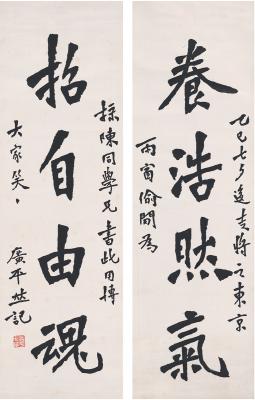 養浩然氣
招自由魂
乙巳七夕送吉將之東京
丙寅偷閒為
採陳同學兄書此用博
大家笑笑
廣平並記